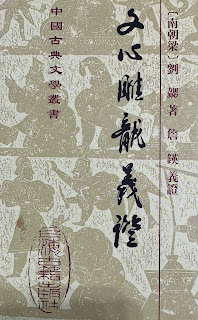 〔南朝梁〕劉勰著 詹鍈義證
文心雕龍義證
中國古典文學叢書
上海古籍出版社